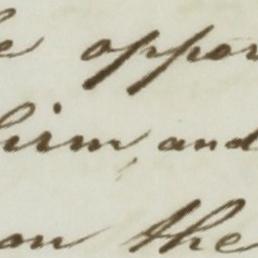 e oppor
him and
on the